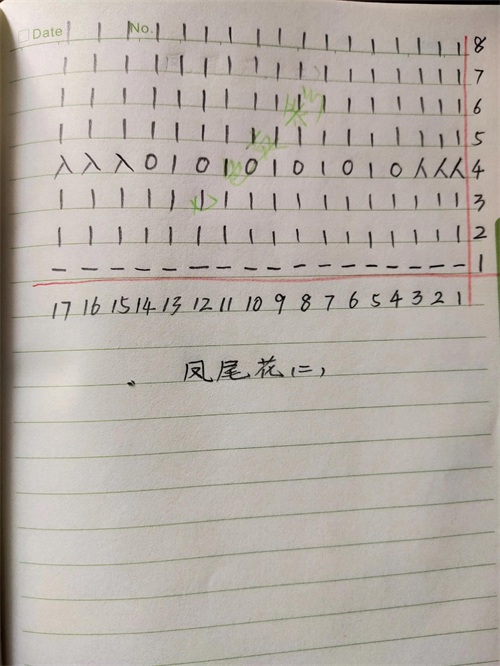 Date No.
| | | | | | | | | | | | | | | | | 8
| | | | | | | | | | | | | | | | | 7
| | | | | | | | | | | | | | | | | 6
| | | | | | | | | | | | | | | | | 5
入 入 入 O | O | O | O | O | O 人 人 人 4
| | | | | | | | | | | | | | | | | 3
| | | | | | | | | | | | | | | | | 2
— — — — — — — — — — — — — — — — — 1
17 16 15 14 13 12 11 10 9 8 7 6 5 4 3 2 1
凤尾花(二)